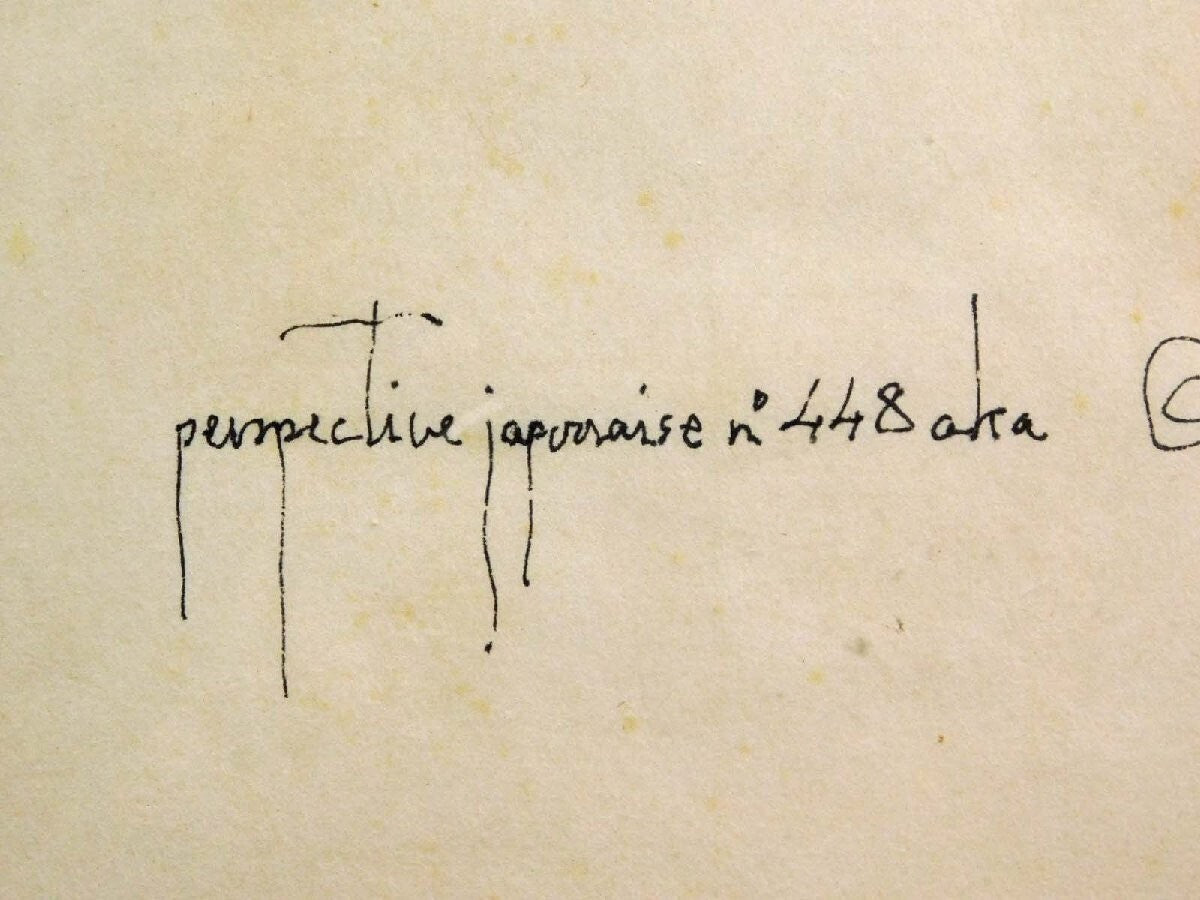 perspective japonaise n° 448 aka ©